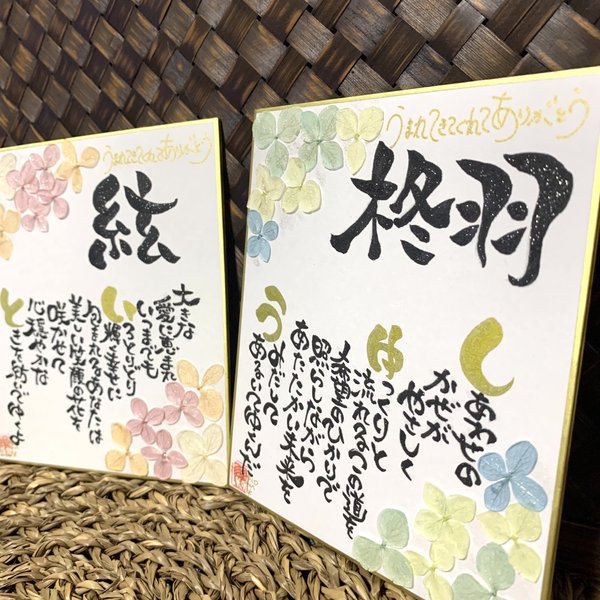 うまれてきてくれてありがとう
絃
大きな
愛に恵まれ
いつまでも
いろとりどり
幸せに
包まれてるあなたは
美しい笑顔の花を
咲かせて
心穏やかな
ときをあるいてゆくよ
うまれてきてくれてありがとう
柊羽
しあわせの
かぜが
やさしく
ゆっくりと
流れるこの
太陽のひかりで
照らしながら
あたたかい未来
あるいてゆくんだ